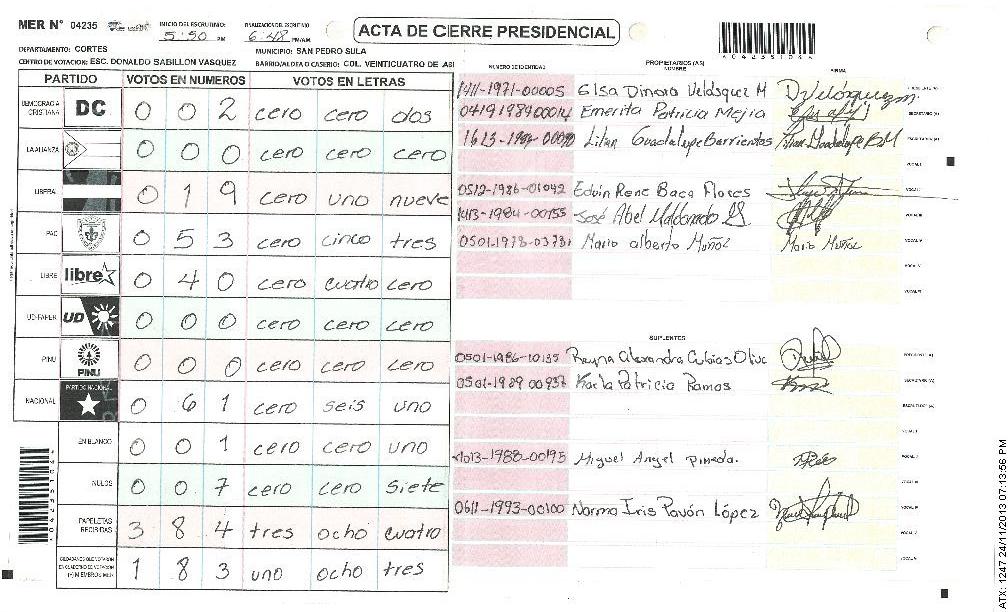 MER N° 04235 INICIO DEL ESCRUTINIO: 5:50 PM FINALIZACION DEL ESCRUTINIO 6:48 PM/AM
ACTA DE CIERRE PRESIDENCIAL
DEPARTAMENTO: CORTES MUNICIPIO: SAN PEDRO SULA
CENTRO DE VOTACION: ESC. DONALDO SABILLON VASQUEZ BARRIO/ALDEA O CASERIO: COL. VEINTICUATRO DE ABI
PARTIDO VOTOS EN NUMEROS VOTOS EN LETRAS
DEMOCRACIA CRISTIANA DC 0 0 2 cero cero dos
LA ALIANZA 0 0 0 cero cero cero
LIBERAL 0 1 9 cero uno nueve
PAC 0 5 3 cero cinco tres
LIBRE libre 0 4 0 cero cuatro cero
UD-FAPER UD 0 0 0 cero cero cero
PINU PINU 0 0 0 cero cero cero
NACIONAL PARTIDO NACIONAL 0 6 1 cero seis uno
EN BLANCO 0 0 1 cero cero uno
NULOS 0 0 7 cero cero siete
PAPELETAS RECIBIDAS 3 8 4 tres ocho cuatro
CIUDADANOS QUE VOTARON EN CUADERNO DE VOTACION (+) MIEMBROS MER 1 8 3 uno ocho tres
NUMERO DE IDENTIDAD PROPIETARIOS (AS) NOMBRE FIRMA
1411-1971-00005 Elsa Dinora Velásquez M
0419198900014 Emerita Patricia Mejia
Lilian Guadalupe Barrientos
0512-1986-01042 Edwin Rene Baca Flores
1413-1984-00155 José Abel Maldonado
0501-1978-03731 Mario alberto Muñoz Mario Muñoz
SUPLENTES
0501-1986-10135 Reyna Alexandra Cubias Oliva
0501-1989 00937 Karla Patricia Ramos
1013-1988-00195 Miguel Angel Pineda.
0611-1993-00100 Norma Iris Pavón López
ATX: 1247 24/11/2013 07:13:56 PM